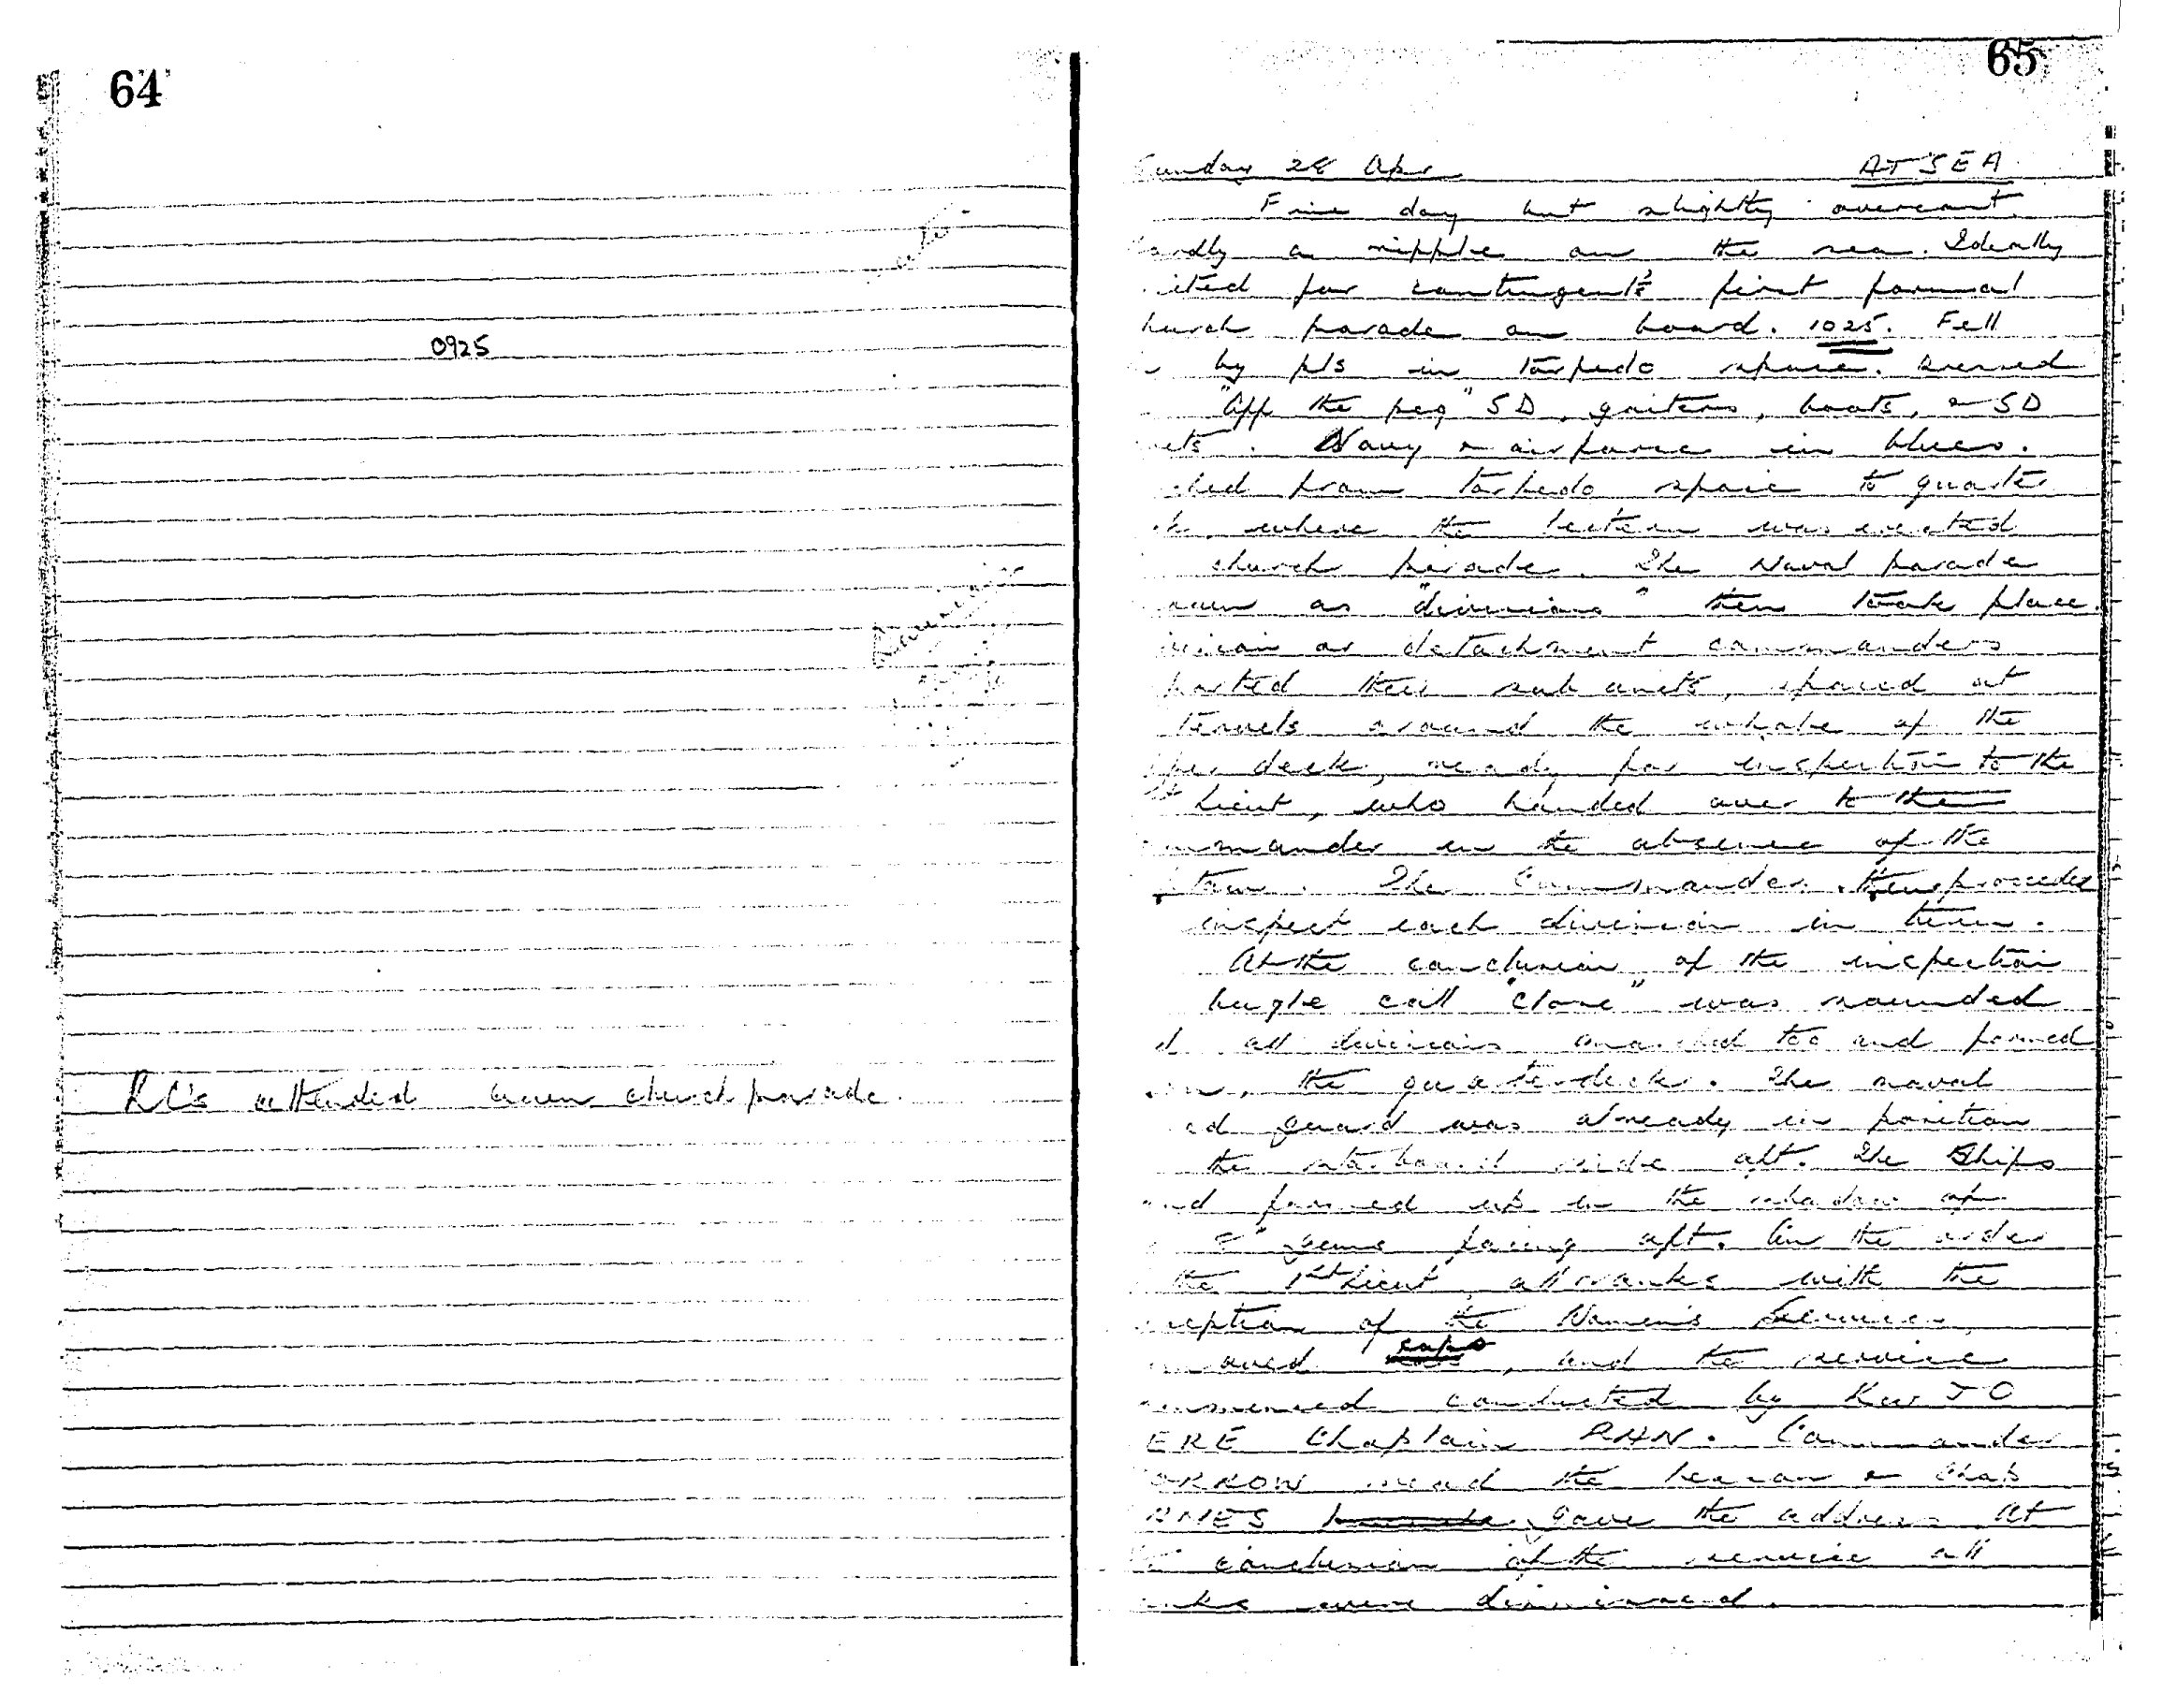 64
0925
RC's attended own church parade.
65
Sunday 28 Apr AT SEA
Fine day but slightly overcast.
ardly a ripple on the sea. Ideally
ited for contingent's first formal
hurch parade on board. 1025. Fell
by pls in torpedo space. Dressed
"off the peg" SD, gaiters, boots, & SD
ets. Navy & airforce in blues.
ched from torpedo space to quarter
where the lectern was erected
church parade. The Naval parade
nown as "divisions" then took place.
ivision or detachment commanders
ported their sub units, spaced at
tervals around the whole of the
pper deck, ready for inspection to the
1st Lieut, who handed over to the
ommander in the absence of the
ptain. The Commander then proceeded
inspect each division in turn.
At the conclusion of the inspection
bugle call "close" was sounded
d all divisions marched too and formed
on, the quarterdeck. The naval
guard was already in position
the starboard side aft. The Ships
and formed up in the shadow of
guns facing aft. On the order
the 1st Lieut, all ranks with the
ception of the Women's Services,
moved caps, and the service
ommenced conducted by Rev J O
ERE Chaplain RAN. Commander
ORROW read the lesson & Chap
RMES gave the address. At
conclusion of the service all
anks were dismissed.